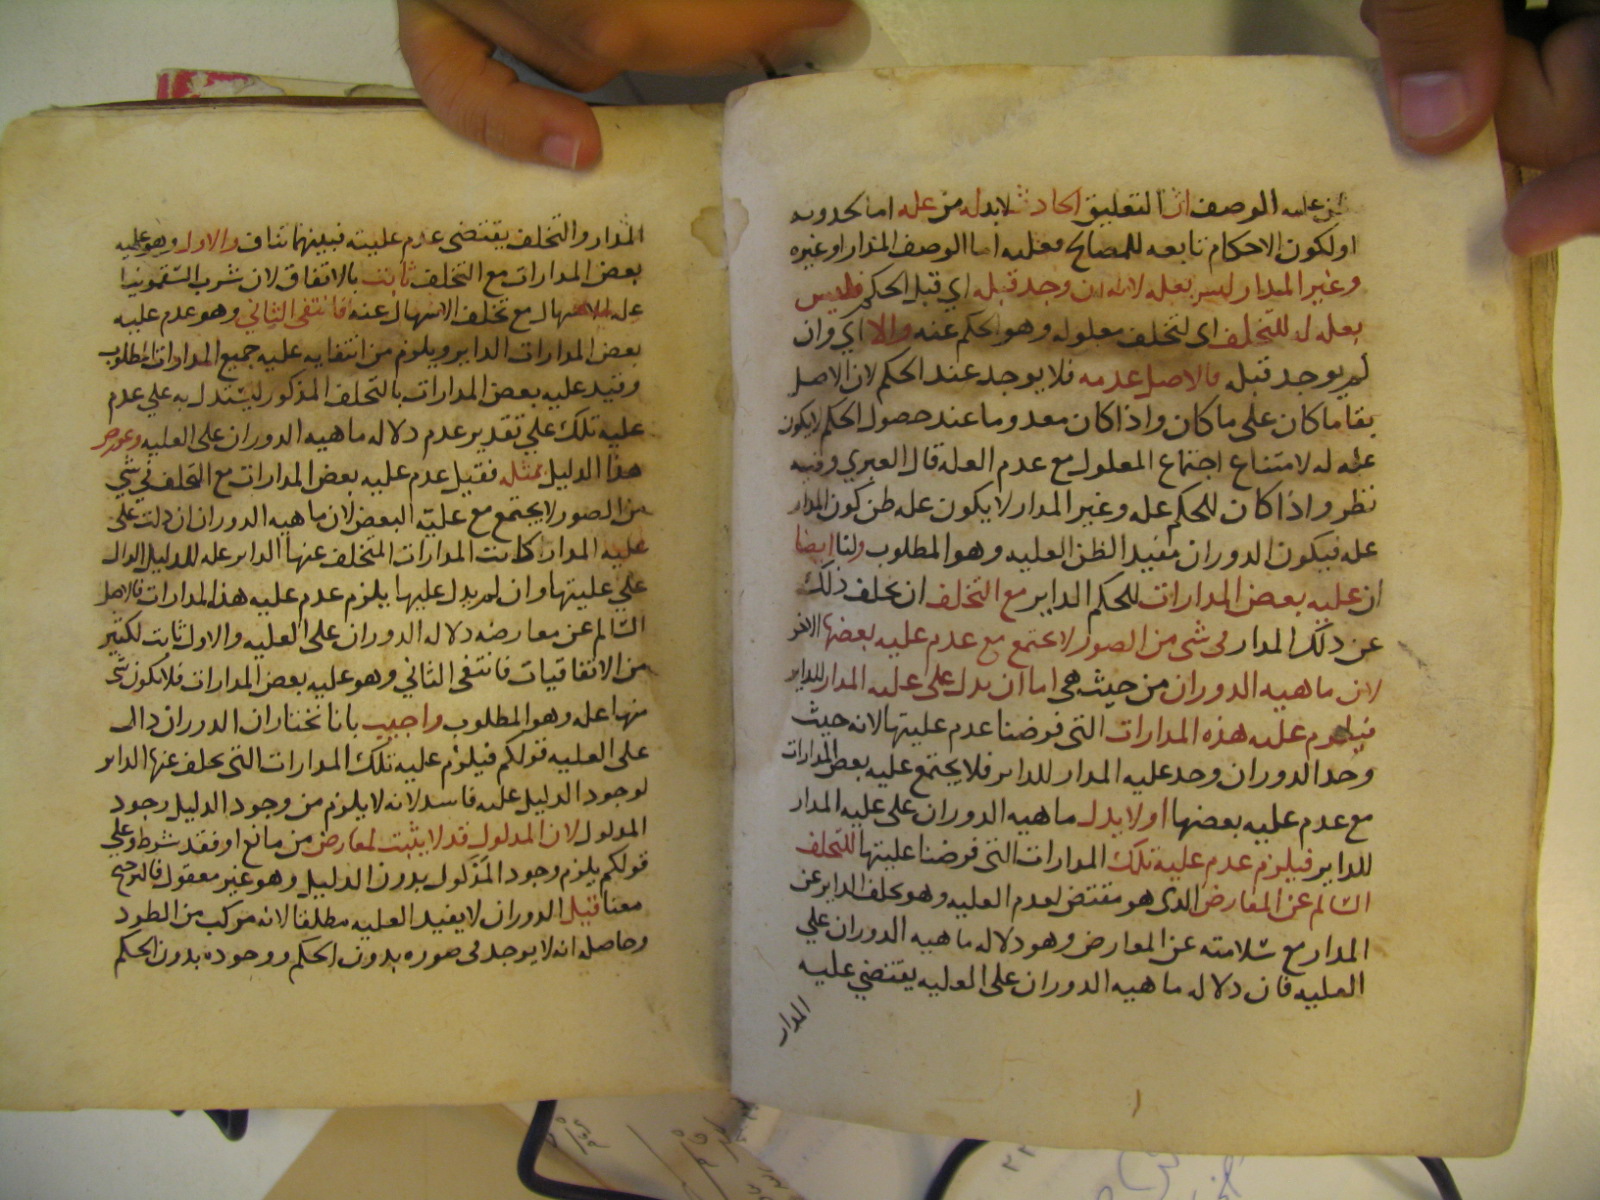 عليه الوصف ان التعليق الحادث لابد له من عله اما كحدوثه
او لكون الاحكام تابعه للمصالح معليه اما الوصف المدار او غيره
وغير المدار ليس بعله لانه ان وجد قبله اي قبل الحكم فليس
بعله له للتخلف اى لتخلف معلوله وهو الحكم عنه والا اي وان
لم يوجد قبله فالاصل عدمه فلا يوجد عند الحكم لان الاصل
بقا ما كان على ما كان واذا كان معدوما عند حصول الحكم لا يكون
عله له لامتناع اجتماع المعلول مع عدم العله قال العبري وفيه
نظر واذا كان للحكم عله وغير المدار لا يكون عله ظن كون المدار
عله فيكون الدوران مفيد الظن العليه وهو المطلوب ولنا ايضا
ان عليه بعض المدارات للحكم الداير مع التخلف ان تخلف ذلك
عن ذلك المدار فى شى من الصور لا يجتمع مع عدم عليه بعضها الاخر
لان ماهيه الدوران من حيث هى اما ان يدل على عليه المدار للداير
فيلزم عليه هذه المدارات التى فرضنا عدم عليتها لانه حيث
وجد الدوران وجد عليه المدار للداير فلا يجتمع عليه بعض المدارات
مع عدم عليه بعضها او لا يدل ماهيه الدوران على عليه المدار
للداير فيلزم عدم علية تلك المدارات التى فرضنا عليتها للتخلف
السالم عن المعارض الذى هو مقتض لعدم العليه وهو تخلف الداير عن
المدار مع سلامته عن المعارض وهو دلاله ماهيه الدوران علي
العليه فان دلاله ماهيه الدوران على العليه يقتضي عليه
المدار
المدار والتخلف يقتضى عدم عليته فبينهما تناف والاول وهو عليه
بعض المدارات مع التخلف ثابت بالاتفاق لان شرب السقمونيا
عله الاسهال مع تخلف الاسهال عنه فانتفى الثاني وهو عدم عليه
بعض المدارات الداير ويلزم من انتفايه عليه جميع المدارات المطلوب
وقيد عليه بعض المدارات بالتخلف المذكور ليستدل به علي عدم
عليه تلك علي تقدير عدم دلاله ماهيه الدوران على العليه وعورض
هذا الدليل بمثله فقيل عدم عليه بعض المدارات مع التخلف في شي
من الصور لا يجتمع مع عليّه البعض لان ماهيه الدوران ان دلت على
عليه المدار كانت المدارات المتخلف عنها الداير عله للدليل الدال
علي عليتها وان لم يدل عليها يلزم عدم عليه هذا المدارات فالاصل
السالم عن معارضه دلاله الدوران على العليه والاول ثابت لكثير
من الاتفاقيات فانتفى الثاني وهو عليه بعض المدارات فلا يكون شى
منها عله وهو المطلوب واجيب بانا نختار ان الدوران دال
على العليه قولكم فيلزم عليه تلك المدارات التى تخلف عنها الداير
لوجود الدليل عليه فاسد لانه لا يلزم من وجود الدليل وجود
المدلول لان المدلول قد لا يثبت لمعارض من مانع او فقد شرط وعلي
قولكم يلزم وجود المدلول بدون الدليل وهو غير معقول فالترجيح
معنا قيل الدوران لا يفيد العليه مطلقا لانه مركب من الطرد
وحاصله انه لا يوجد فى صوره بدون الحكم ووجوده بدون الحكم